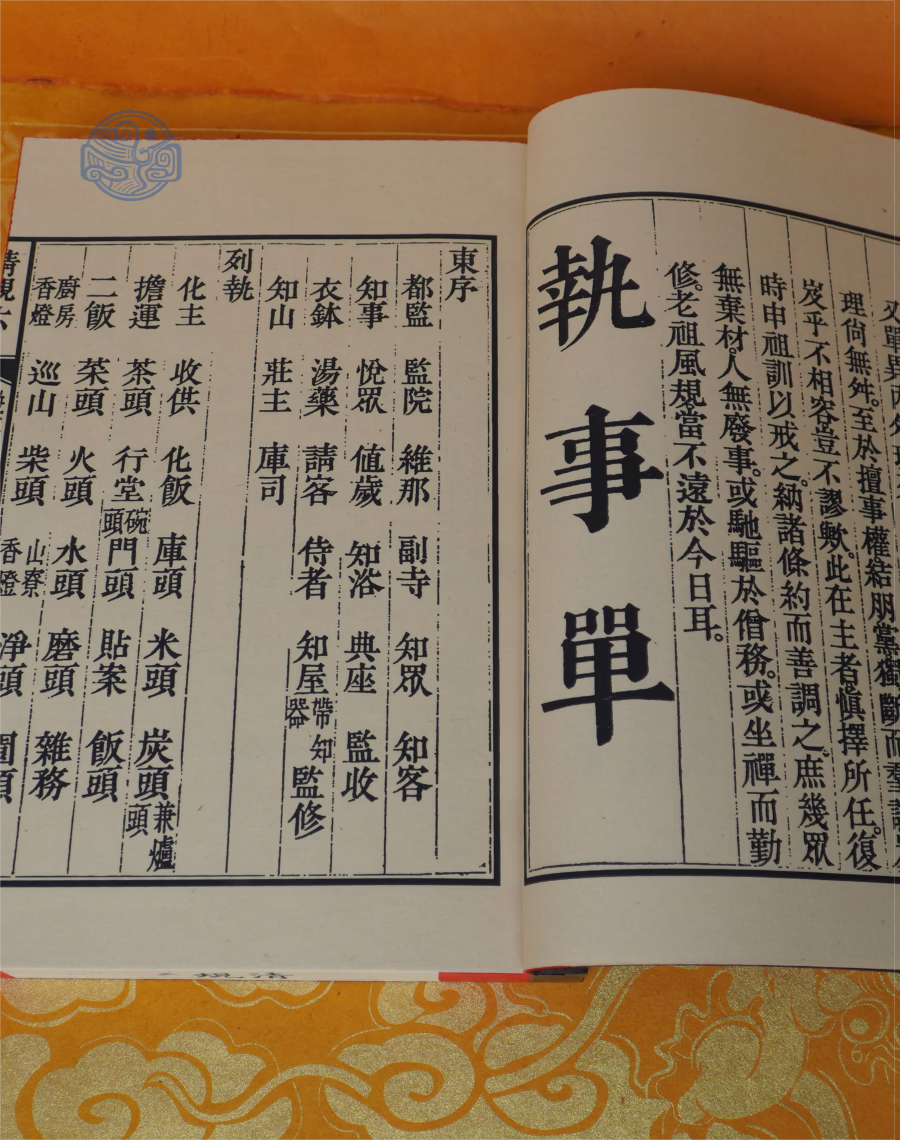 理尙無舛。至於擅事權結朋黨獨斷而羣
岌乎不相容豈不謬歟。此在主者愼擇所任。復
時申祖訓以戒之。納諸條約而善調之。庶幾眾
無棄材。人無廢事。或馳驅於僧務。或坐禪而勤
修。老祖風規當不遠於今日耳。
執事單
東序
都監 監院 維那 副寺 知眾 知客
知事 悅眾 値歲 知浴 典座 監收
衣鉢 湯藥 請客 侍者 知屋帶知器 監修
知山 莊主 庫司
列執
化主 收供 化飯 庫頭 米頭 炭頭兼爐頭
擔運 茶頭 行堂碗頭 門頭 貼案 飯頭
二飯 菜頭 火頭 水頭 磨頭 雜務
廚房香燈 巡山 柴頭 山寮香燈 淨頭
清規